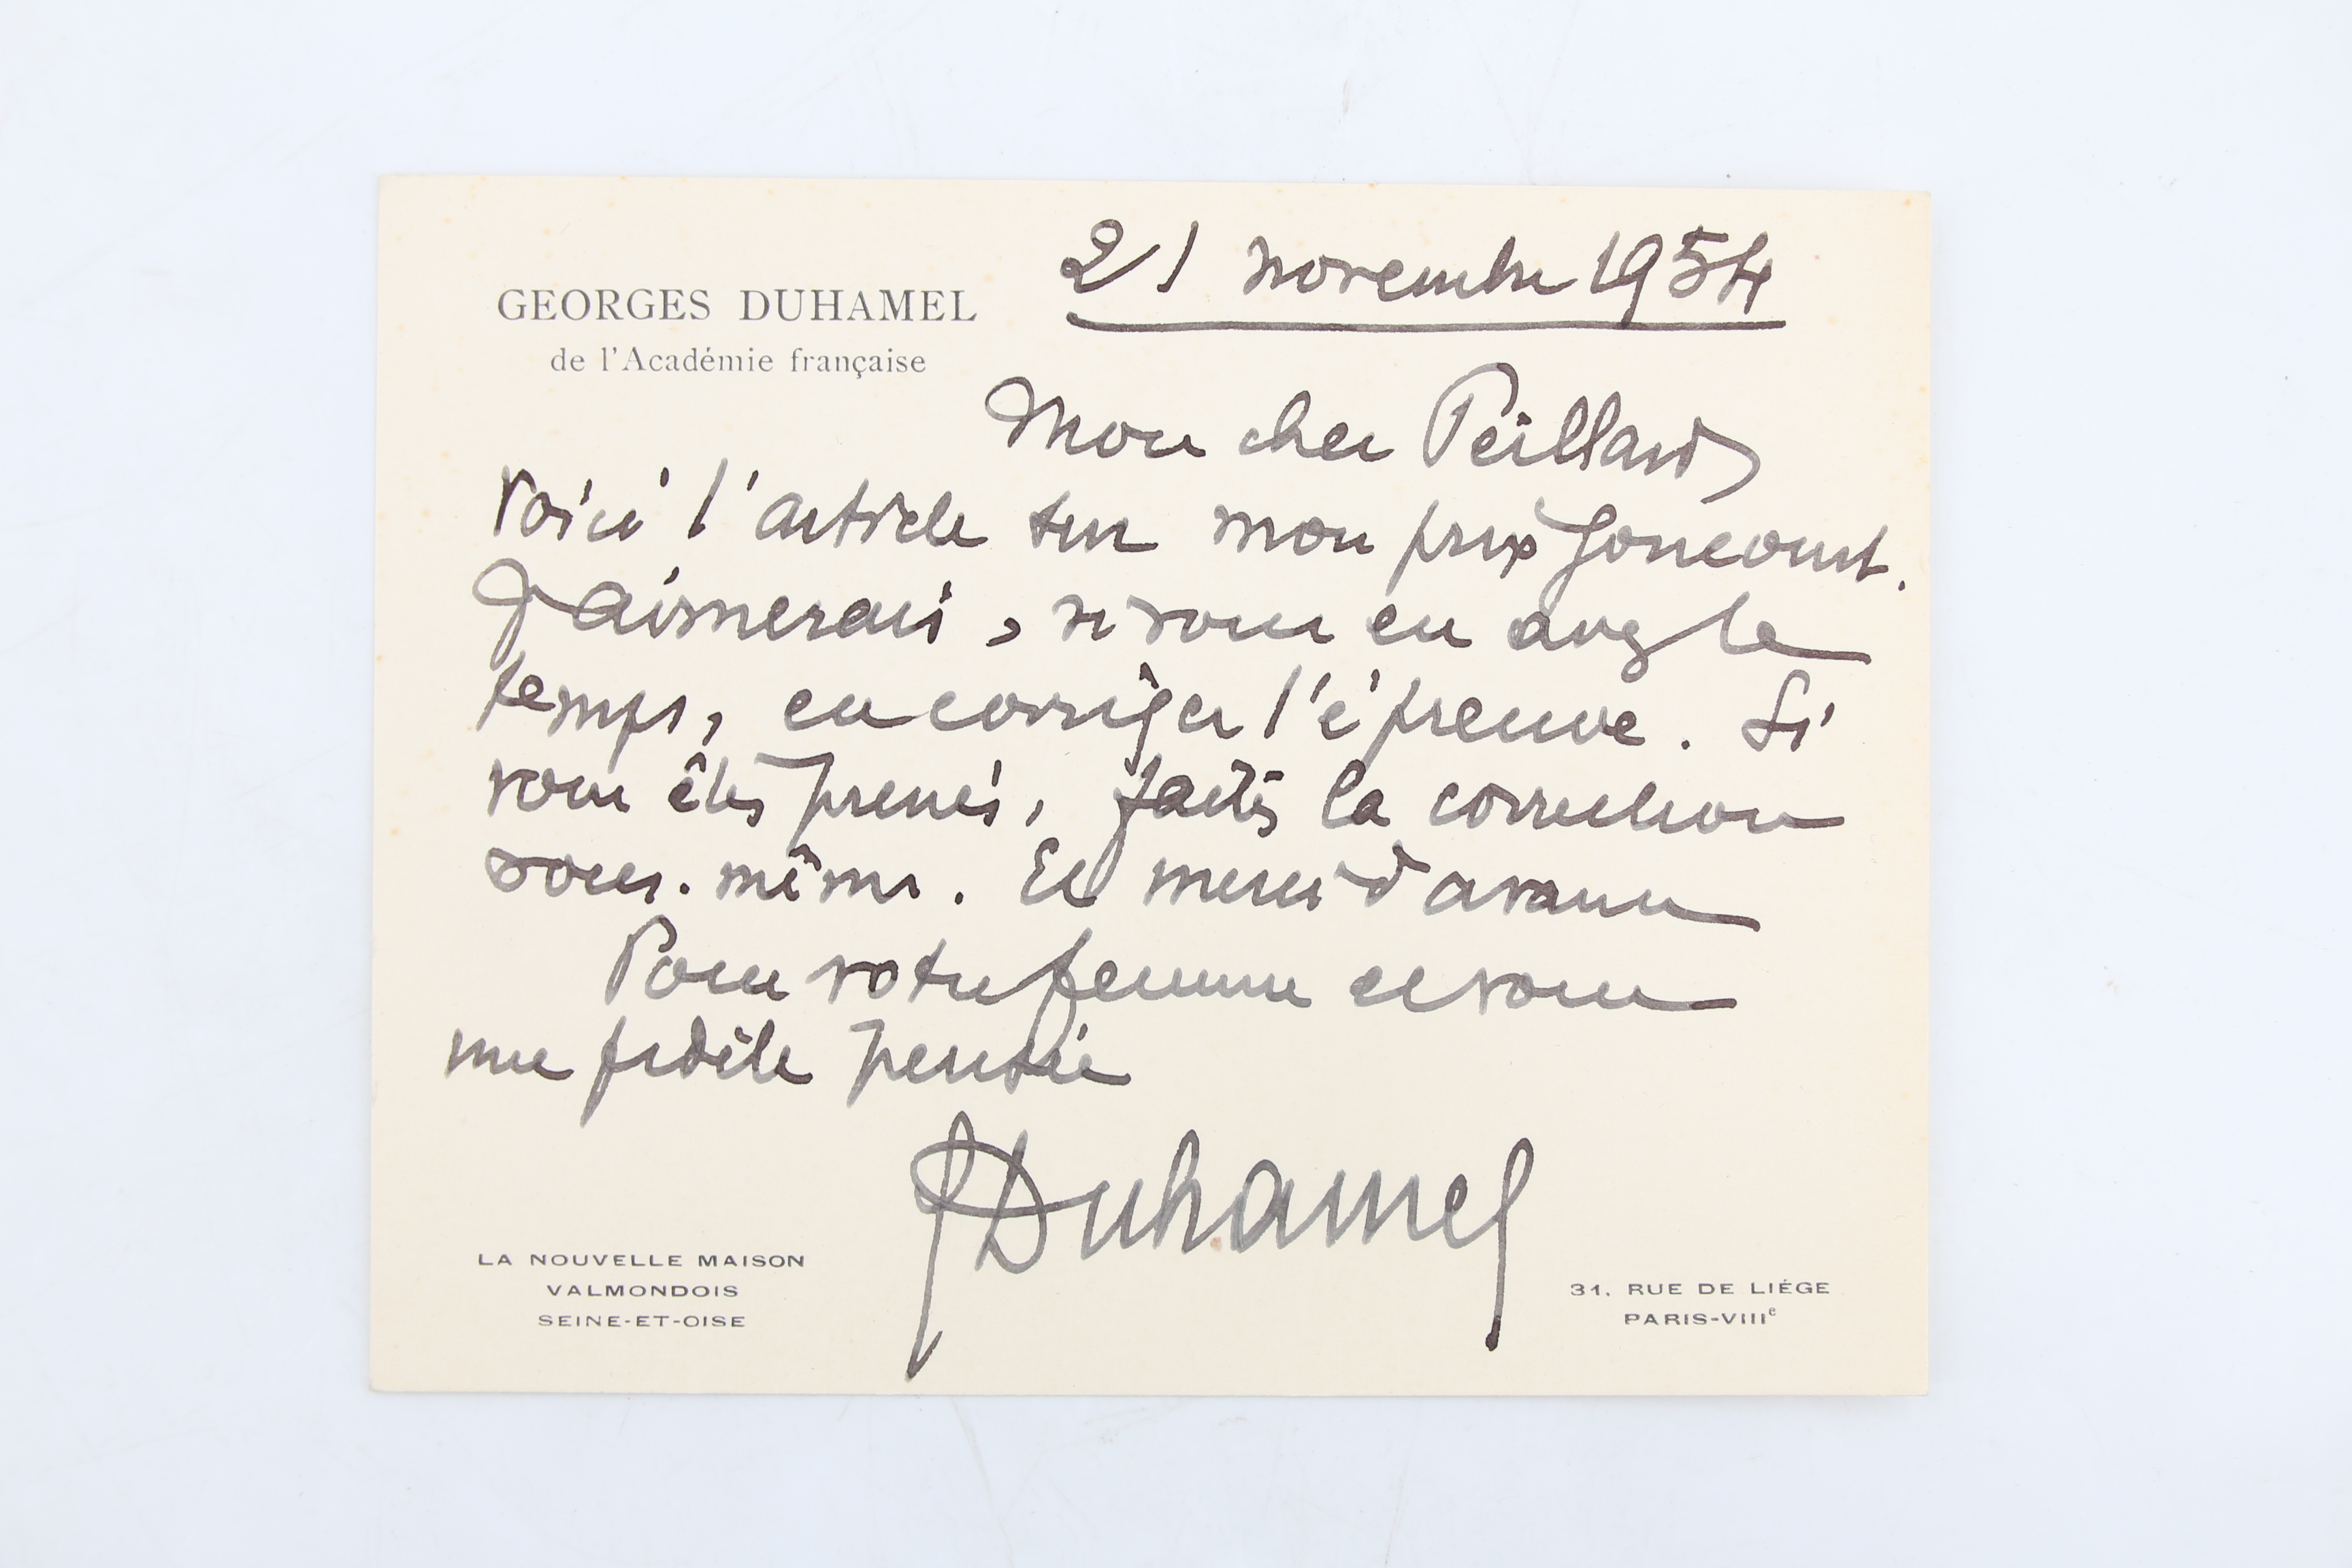 21 novembre 1954
GEORGES DUHAMEL
de l'Académie française
Mon cher Peillard
voici l'article sur mon prix Goncourt.
J'aimerais, si vous en avez le
temps, en corriger l'épreuve. Si
vous êtes pressés, faites la correction
vous-même. Et merci d'avance
Pour votre femme et vous
ma fidèle pensée
GDuhamel
LA NOUVELLE MAISON
VALMONDOIS
SEINE-ET-OISE
31, RUE DE LIÉGE
PARIS-VIIIe